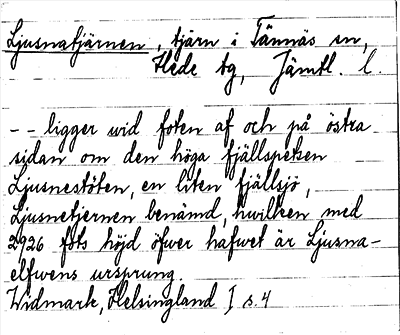 Ljusnatjärnen, tjärn i Tännäs sn,
Hede tg, Jämtl. l.
-- ligger wid foten af och på östra
sidan om den höga fjällspetsen
Ljusnestöten, en liten fjällsjö,
Ljusnetjernen benämd, hwilken med
2926 fots höjd öfwer hafwet är Ljusna-
elfwens ursprung.
Widmark, Helsingland I s. 4